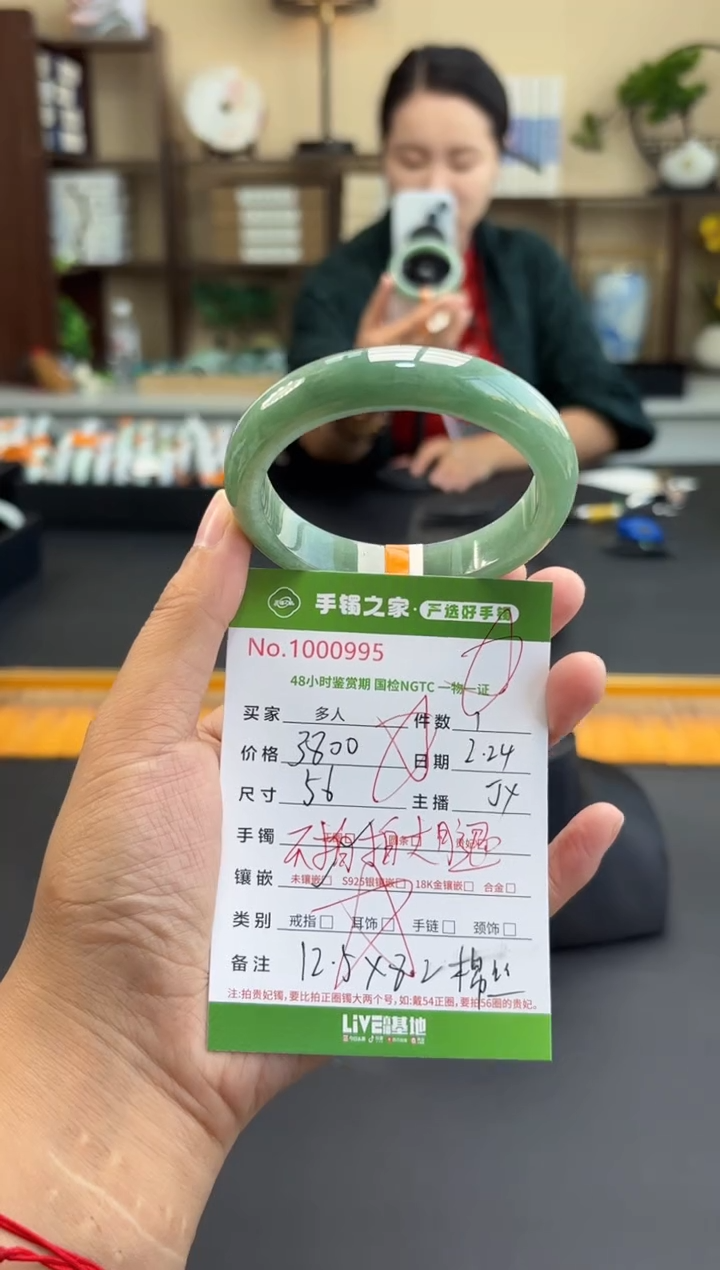 手镯之家·严选好手镯
No.1000995
48小时鉴赏期 国检NGTC 一物一证
买家 多人 件数 1
价格 3800 日期 2.24
尺寸 56 主播 JX
手镯
镶嵌 未镶嵌□ S925银镶嵌□ 18K金镶嵌□ 合金□
类别 戒指□ 耳饰□ 手链□ 颈饰□
备注 12.5×8.2 棉丝
注:拍贵妃镯,要比拍正圈镯大两个号,如:戴54正圈,要拍56圈的贵妃。
LIVE直播基地